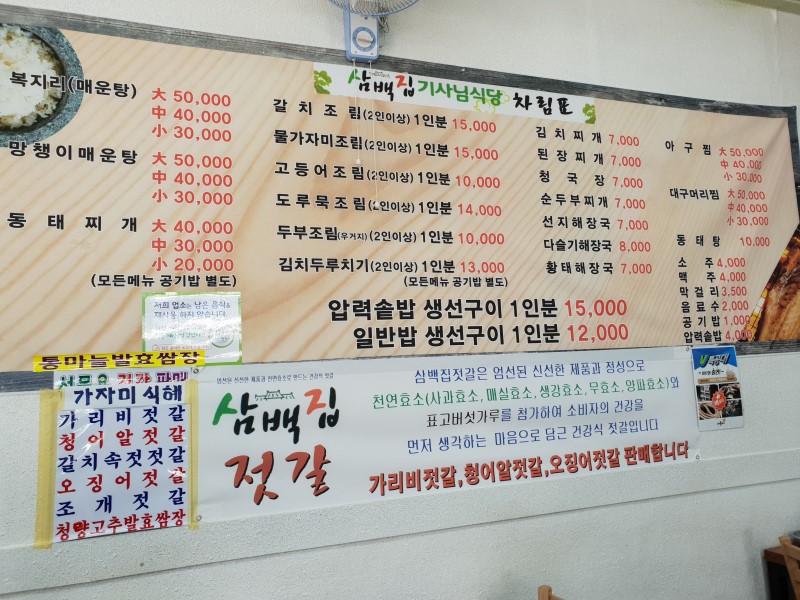 삼백집 기사님식당 차림표
복지리(매운탕) 大 50,000
中 40,000
小 30,000
망챙이매운탕 大 50,000
中 40,000
小 30,000
동태찌개 大 40,000
中 30,000
小 20,000
(모든메뉴 공기밥 별도)
갈치조림(2인이상) 1인분 15,000
물가자미조림(2인이상) 1인분 15,000
고등어조림(2인이상) 1인분 10,000
도루묵조림(2인이상) 1인분 14,000
두부조림(우거지)(2인이상) 1인분 10,000
김치두루치기(2인이상) 1인분 13,000
(모든메뉴 공기밥 별도)
김치찌개 7,000
된장찌개 7,000
청국장 7,000
순두부찌개 7,000
선지해장국 7,000
다슬기해장국 8,000
황태해장국 7,000
아구찜 大 50,000
中 40,000
小 30,000
대구머리찜 大 50,000
中 40,000
小 30,000
동태탕 10,000
소주 4,000
맥주 4,000
막걸리 3,500
음료수 2,000
공기밥 1,000
압력솥밥 4,000
압력솥밥 생선구이 1인분 15,000
일반밥 생선구이 1인분 12,000
저희 업소는 남은 음식을
재사용 하지 않습니다.
통마늘발효쌈장
가자미식해
가리비젓갈
청어알젓갈
갈치속젓젓갈
오징어젓갈
조개젓갈
청양고추발효쌈장
엄선된 신선한 제품과 천연효소로 만드는 건강식 젓갈
삼백집
젓갈
삼백집젓갈은 엄선된 신선한 제품과 정성으로
천연효소(사과효소, 매실효소, 생강효소, 무효소, 양파효소)와
표고버섯가루를 첨가하여 소비자의 건강을
먼저 생각하는 마음으로 담근 건강식 젓갈입니다
가리비젓갈, 청어알젓갈, 오징어젓갈 판매합니다